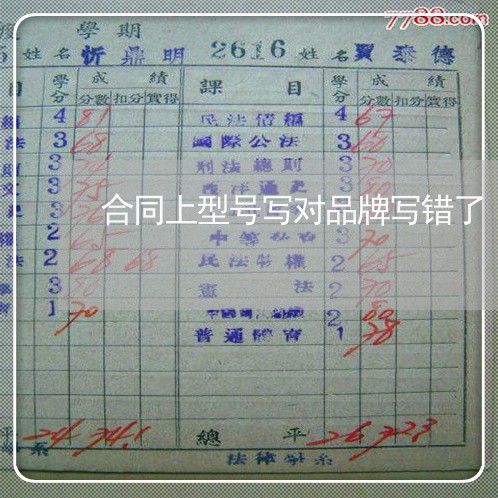 7788.com
度 學期
5 姓名 忻鼎明 2616 姓名 賈泰德
目 學分 成績 課目 學分 成績
分數 扣分 實得 分數 扣分 實得
4 81 民法債編 4 67
法 3 68 國際公法 3 60
則 3 刑法總則 3 70
文 3 75 西洋通史 3 80
史 3 76 3
合同上型号写对品牌写错了
權 2 65 3 70
法 2 68 68 民法物權 2 65
3 80 憲法 2 70
育 1 70 2 80
普通體育 1 78
平 24 74.1 總平 26 72.3
系 法律學系